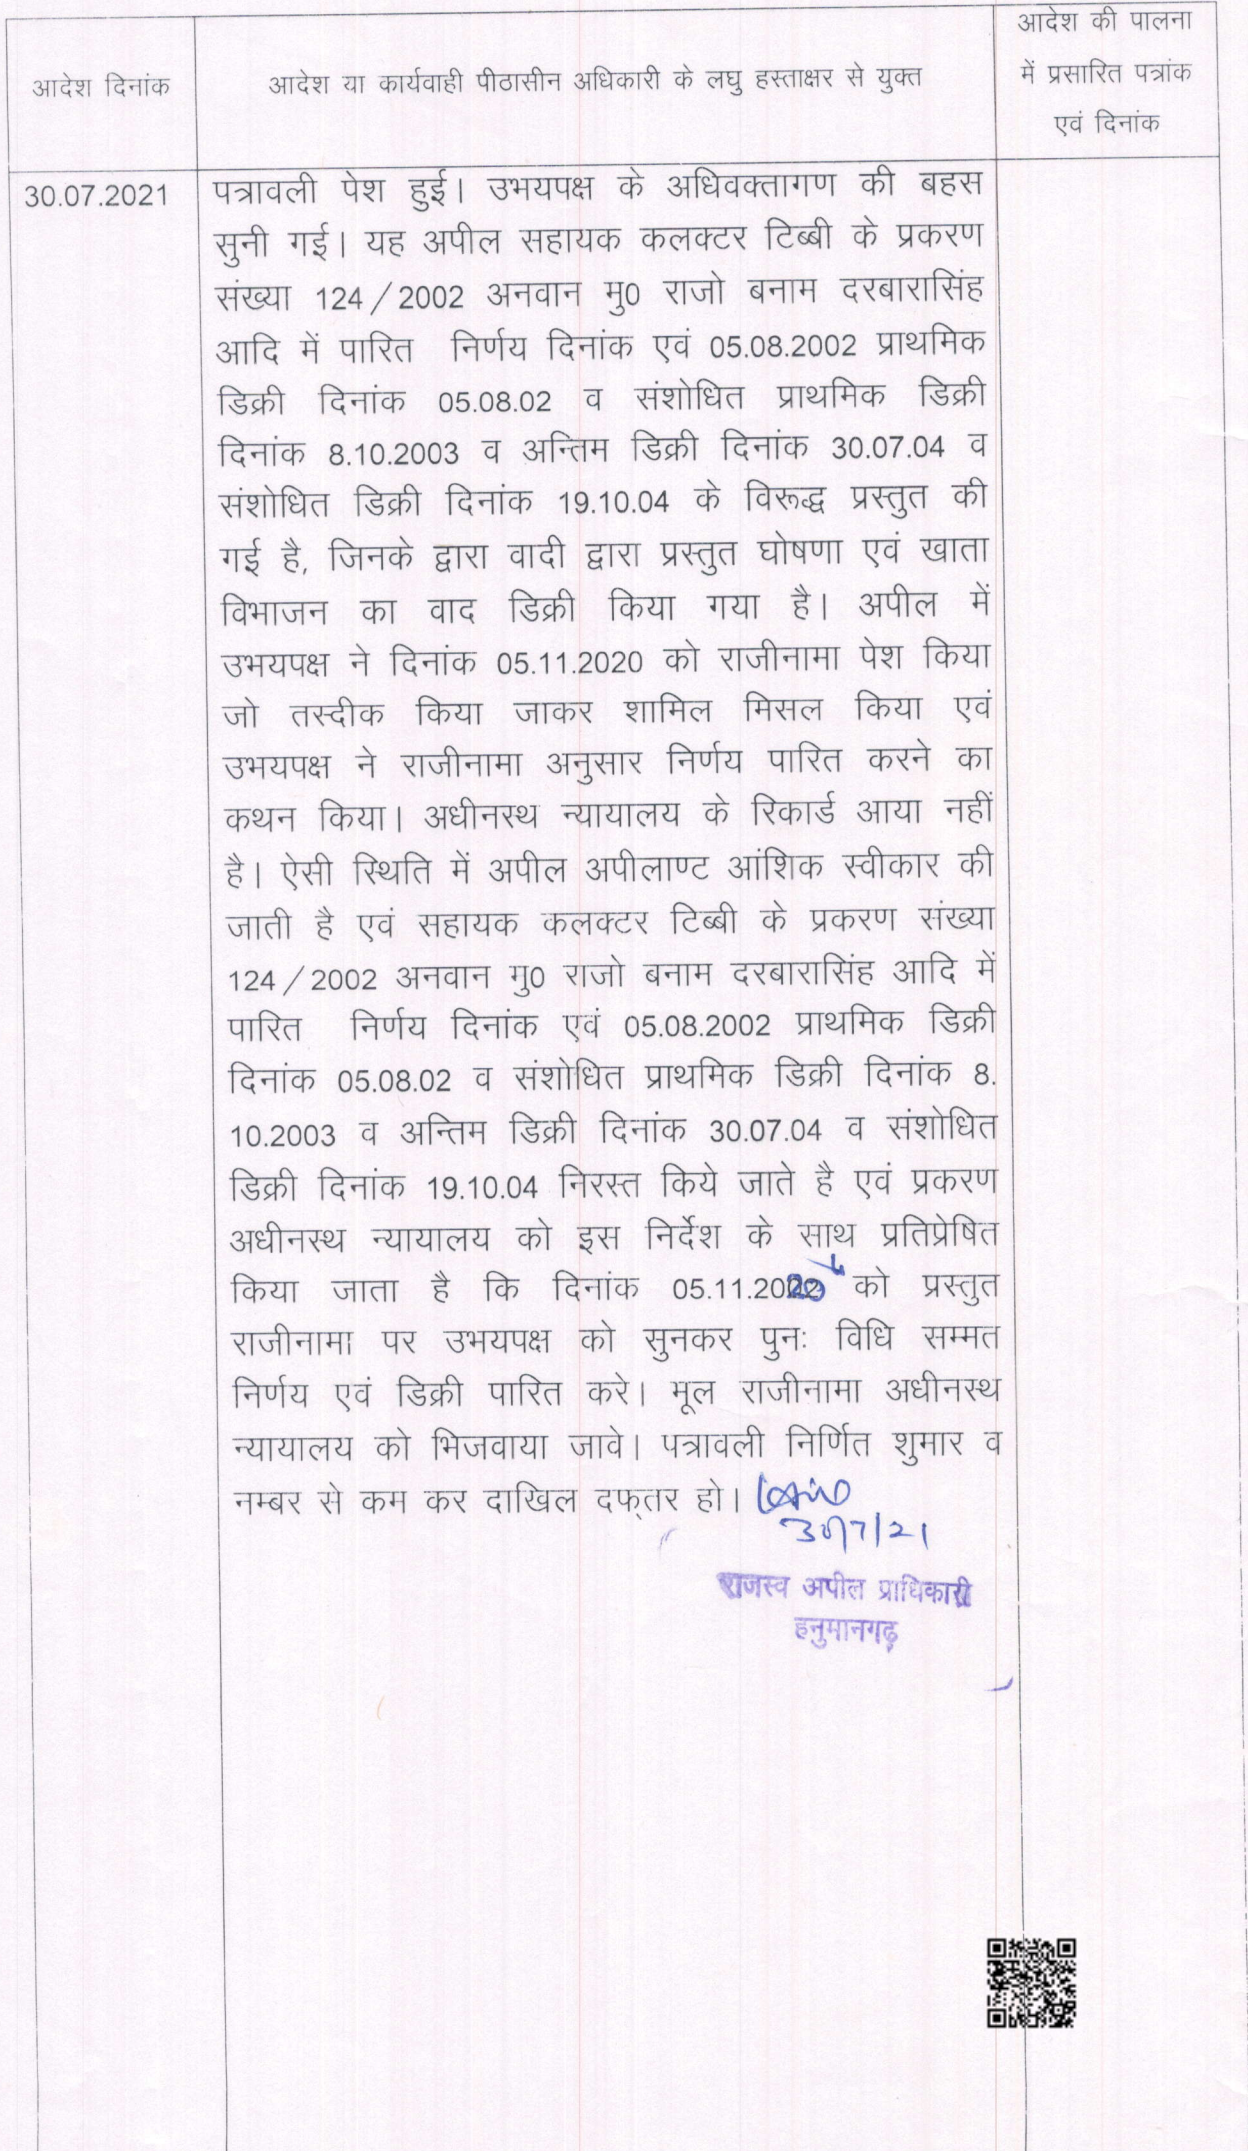 आदेश दिनांक
आदेश या कार्यवाही पीठासीन अधिकारी के लघु हस्ताक्षर से युक्त
आदेश की पालना
में प्रसारित पत्रांक
एवं दिनांक
30.07.2021
पत्रावली पेश हुई। उभयपक्ष के अधिवक्तागण की बहस
सुनी गई। यह अपील सहायक कलक्टर टिब्बी के प्रकरण
संख्या 124/2002 अनवान मु0 राजो बनाम दरबारासिंह
आदि में पारित निर्णय दिनांक एवं 05.08.2002 प्राथमिक
डिक्री दिनांक 05.08.02 व संशोधित प्राथमिक डिक्री
दिनांक 8.10.2003 व अन्तिम डिक्री दिनांक 30.07.04 व
संशोधित डिक्री दिनांक 19.10.04 के विरूद्ध प्रस्तुत की
गई है, जिनके द्वारा वादी द्वारा प्रस्तुत घोषणा एवं खाता
विभाजन का वाद डिक्री किया गया है। अपील में
उभयपक्ष ने दिनांक 05.11.2020 को राजीनामा पेश किया
जो तस्दीक किया जाकर शामिल मिसल किया एवं
उभयपक्ष ने राजीनामा अनुसार निर्णय पारित करने का
कथन किया। अधीनस्थ न्यायालय के रिकार्ड आया नहीं
है। ऐसी स्थिति में अपील अपीलाण्ट आंशिक स्वीकार की
जाती है एवं सहायक कलक्टर टिब्बी के प्रकरण संख्या
124/2002 अनवान मु0 राजो बनाम दरबारासिंह आदि में
पारित निर्णय दिनांक एवं 05.08.2002 प्राथमिक डिक्री
दिनांक 05.08.02 व संशोधित प्राथमिक डिक्री दिनांक 8.
10.2003 व अन्तिम डिक्री दिनांक 30.07.04 व संशोधित
डिक्री दिनांक 19.10.04 निरस्त किये जाते है एवं प्रकरण
अधीनस्थ न्यायालय को इस निर्देश के साथ प्रतिप्रेषित
किया जाता है कि दिनांक 05.11.2020 को प्रस्तुत
राजीनामा पर उभयपक्ष को सुनकर पुनः विधि सम्मत
निर्णय एवं डिक्री पारित करे। मूल राजीनामा अधीनस्थ
न्यायालय को भिजवाया जावे। पत्रावली निर्णित शुमार व
नम्बर से कम कर दाखिल दफ्तर हो।
30/7/21
राजस्व अपील प्राधिकारी
हनुमानगढ़